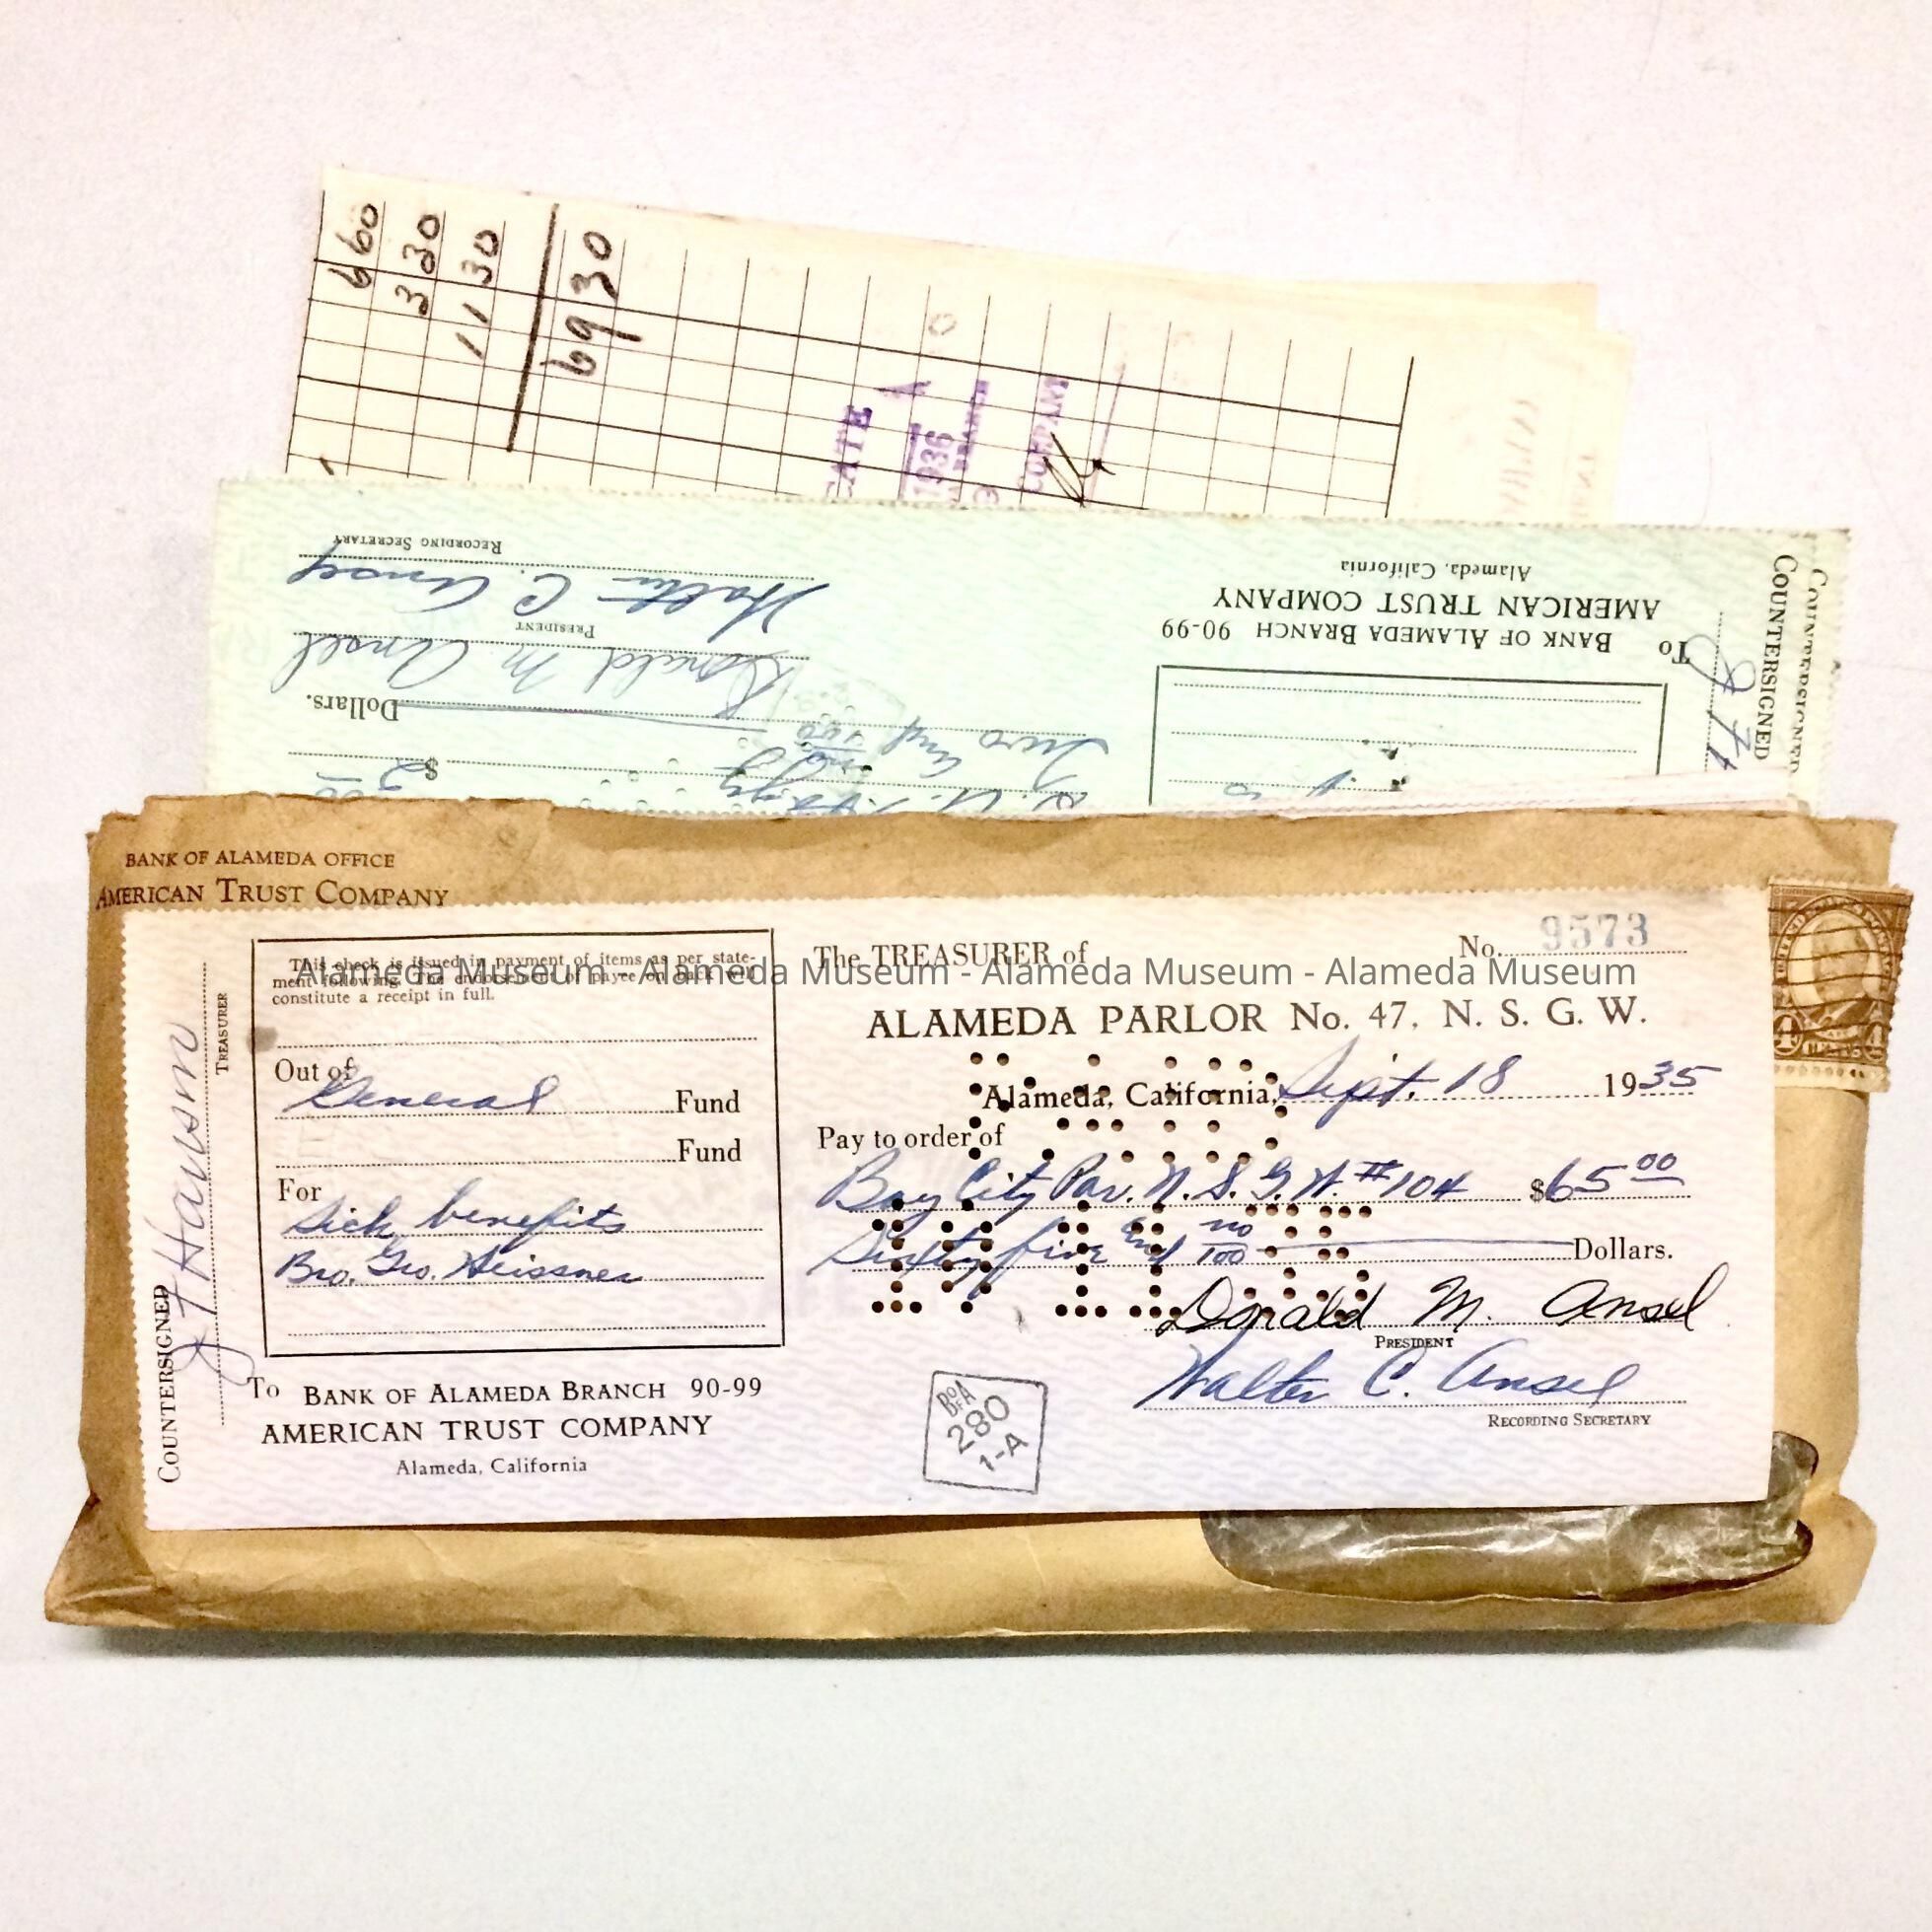 660
330
1130
6930
1936
BRANCH
COMPANY
RECORDING SECRETARY
Walter C. Ansel
PRESIDENT
Donald M. Ansel
Dollars.
Two and no/100
$ 2 00
To BANK OF ALAMEDA BRANCH 90-99
AMERICAN TRUST COMPANY
Alameda, California
COUNTERSIGNED
COUNTERSIGNED
BANK OF ALAMEDA OFFICE
AMERICAN TRUST COMPANY
Alameda Museum - Alameda Museum - Alameda Museum - Alameda Museum
This check is issued in payment of items as per state-
ment following. The endorsement of payee on back will
constitute a receipt in full.
Out of
General Fund
Fund
For
Sick benefits
Bro. Geo. Heissner
To BANK OF ALAMEDA BRANCH 90-99
AMERICAN TRUST COMPANY
Alameda, California
COUNTERSIGNED
TREASURER
The TREASURER of
No. 9573
ALAMEDA PARLOR No. 47, N. S. G. W.
Alameda, California, Sept. 18 1935
Pay to order of
Bay City Par. N. S. G. W. #104 $65 00
Sixty five and no/100 Dollars.
Donald M. Ansel
PRESIDENT
Walter C. Ansel
RECORDING SECRETARY
B of A
280
1-A
4 4